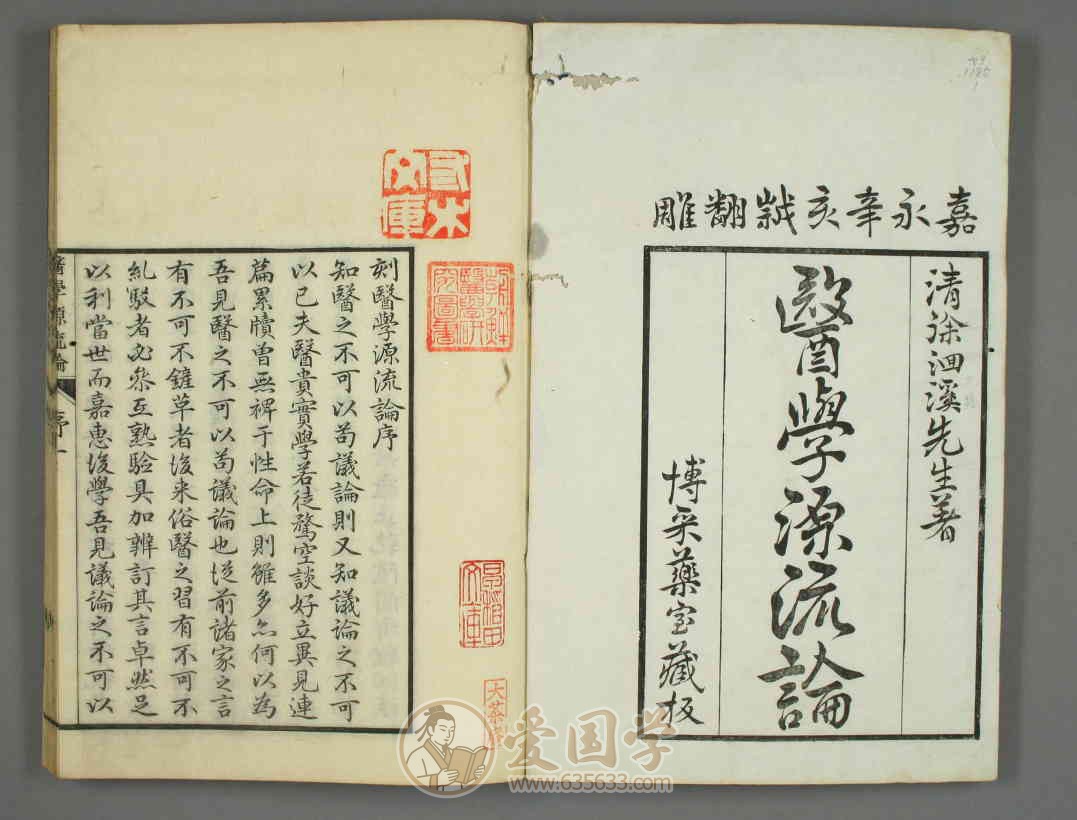 嘉永辛亥嵗翻雕
清徐洄溪先生著
醫學源流論
博采藥室藏板
刻醫學源流論序
知醫之不可以苟議論則又知議論之不可
以已夫醫貴實學若徒騖空談好立異見連
篇累牘曾無裨于性命上則雖多亦何以為
吾見醫之不可以苟議論也從前諸家之言
有不可不鏟草者後来俗醫之習有不可不
糺駁者必參互熟驗具加辨訂其言卓然足
以利當世而嘉惠後學吾見議論之不可以
醫學源流論 序 一
文庫
醫學研
究圖書
文庫
爱国学
www.635633.com